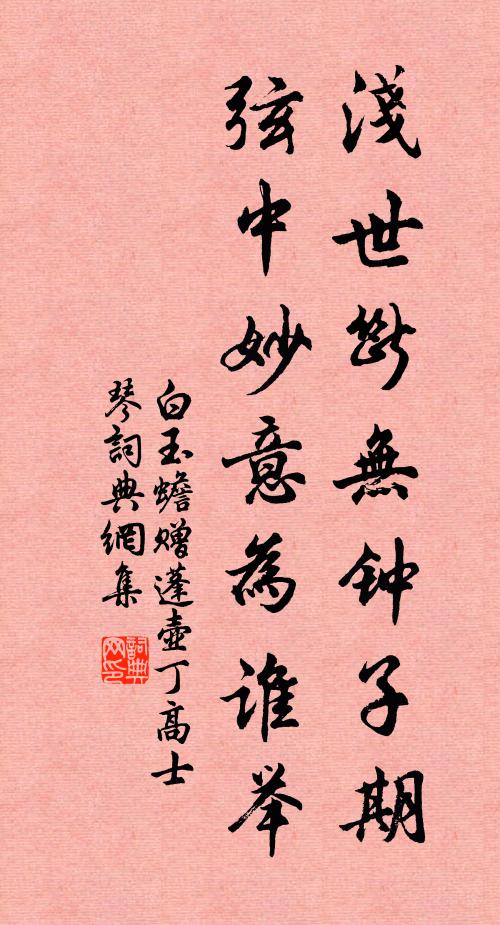 淺世斷無钟子期
弦中妙意為誰举
白玉蟾赠蓬壺丁高士
琴詞典網集
詞典
网印